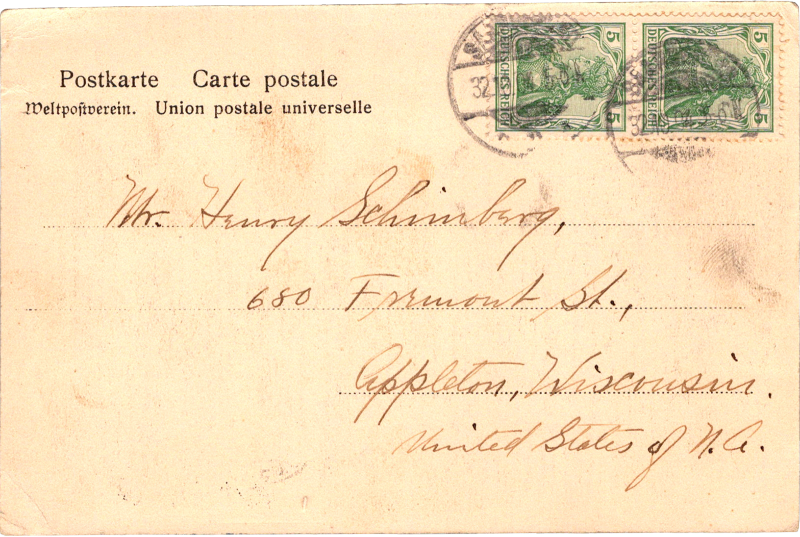 Postkarte Carte postale
Weltpostverein. Union postale universelle
5 DEUTSCHES REICH 5
5 DEUTSCHES REICH 5
Mr. Henry Schimberg,
680 Fremont St.,
Appleton, Wisconsin.
United States of N.A.